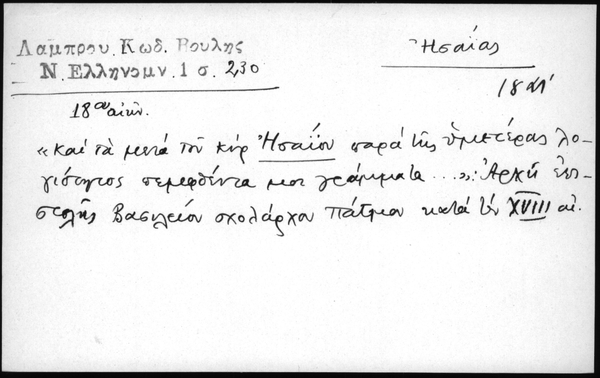 Λάμπρου. Κωδ. Βουλης
Ν. Ελληνομν. 1 σ. 230
Ἡσαΐας
18 αἰ
18ου αἰών.
«καὶ τὰ μετὰ τοῦ κὺρ Ἡσαΐου παρὰ τῆς ὑμετέρας λο-
γιότητος πεμφθέντα μοι γράμματα ...». Ἀρχὴ ἐπι-
στολῆς Βασιλείου σχολάρχου Πάτμου κατὰ τὸν XVIII αἰ.